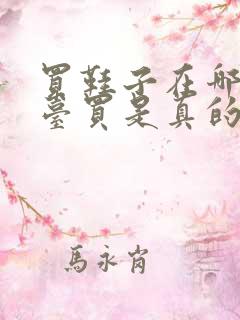 買鞋子在哪
臺買是真的
馬永肖